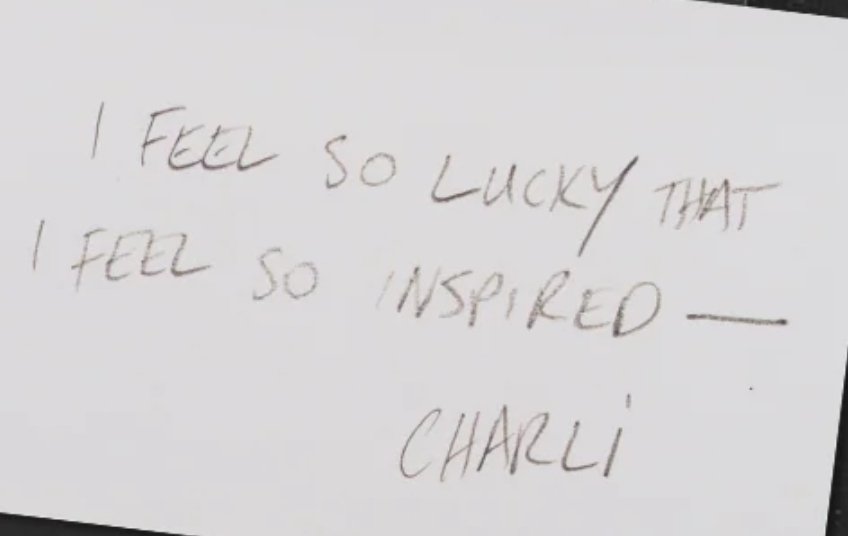 I FEEL SO LUCKY THAT
I FEEL SO INSPIRED —
CHARLi